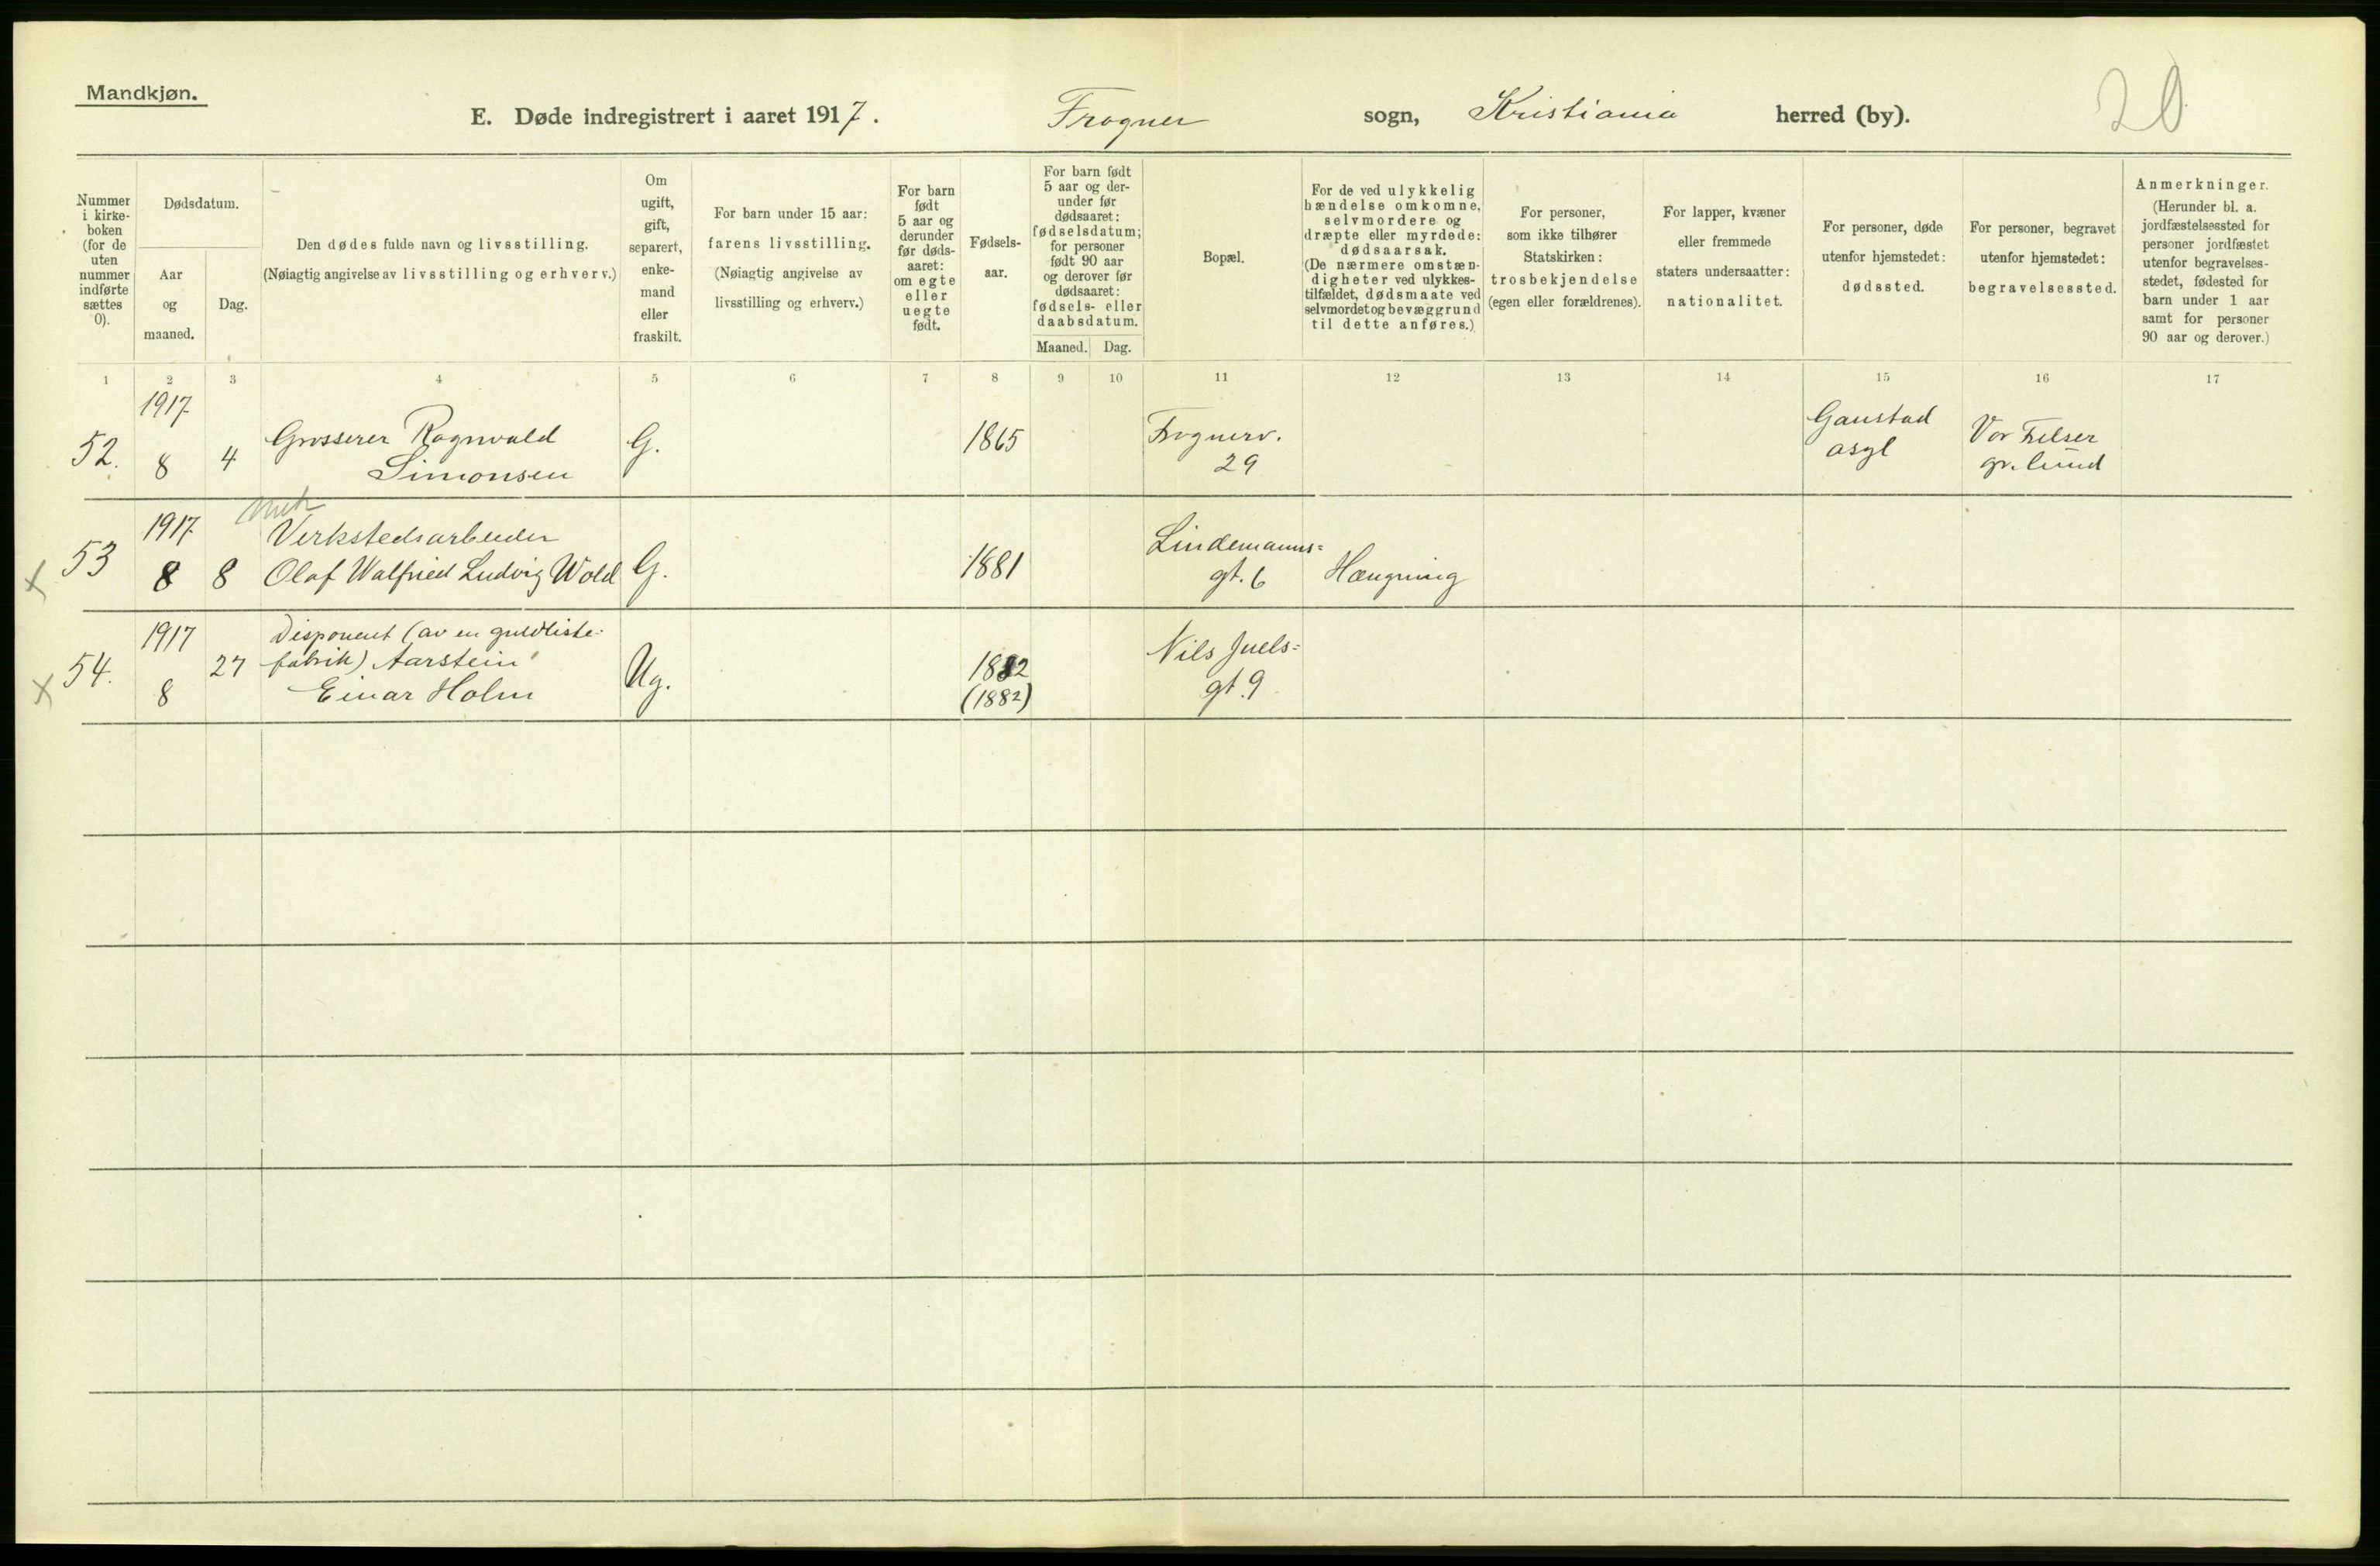 Mandkjøn.
E. Døde indregistrert i aaret 1917. Frogner sogn, Kristiania herred (by).
20
Nummer
i kirke-
boken
(for de
uten
nummer
indførte
sættes
0).
Dødsdatum.
Aar
og
maaned.
Dag.
Den dødes fulde navn og livsstilling.
(Nøiagtig angivelse av livsstilling og erhverv.)
Om
ugift,
gift,
separert,
enke-
mand
eller
fraskilt.
For barn under 15 aar:
farens livsstilling.
(Nøiagtig angivelse av
livsstilling og erhverv.)
For barn
født
5 aar og
derunder
før døds-
aaret:
om egte
eller
uegte
født.
Fødsels-
aar.
For barn født
5 aar og der-
under før
dødsaaret:
fødselsdatum;
for personer
født 90 aar
og derover før
dødsaaret:
fødsels- eller
daabsdatum.
Maaned. Dag.
Bopæl.
For de ved ulykkelig
hændelse omkomne,
selvmordere og
dræpte eller myrdede:
dødsaarsak.
(De nærmere omstæn-
digheter ved ulykkes-
tilfældet, dødsmaate ved
selvmordet og bevæggrund
til dette anføres.)
For personer,
som ikke tilhører
Statskirken:
trosbekjendelse
(egen eller forældrenes).
For lapper, kvæner
eller fremmede
staters undersaatter:
nationalitet.
For personer, døde
utenfor hjemstedet:
dødssted.
For personer, begravet
utenfor hjemstedet:
begravelsessted.
Anmerkninger.
(Herunder bl. a.
jordfæstelsessted for
personer jordfæstet
utenfor begravelses-
stedet, fødested for
barn under 1 aar
samt for personer
90 aar og derover.)
1 2 3 4 5 6 7 8 9 10 11 12 13 14 15 16 17
52.
1917
8
4
Grosserer Ragnvald
Simonsen
G.
1865
Frognerv.
29
Gaustad
asyl
Vor Frelser
gr. lund
x
53
1917
8
8
Verkstedsarbeider
Olaf Walfried Ludvig Wold
G.
1881
Lindemanns=
gt. 6
Hængning
x
54.
1917
8
27
Disponent (av en guldliste-
fabrik) Aarstein
Einar Holm
Ug.
1882
(1882)
Nils Juels=
gt. 9